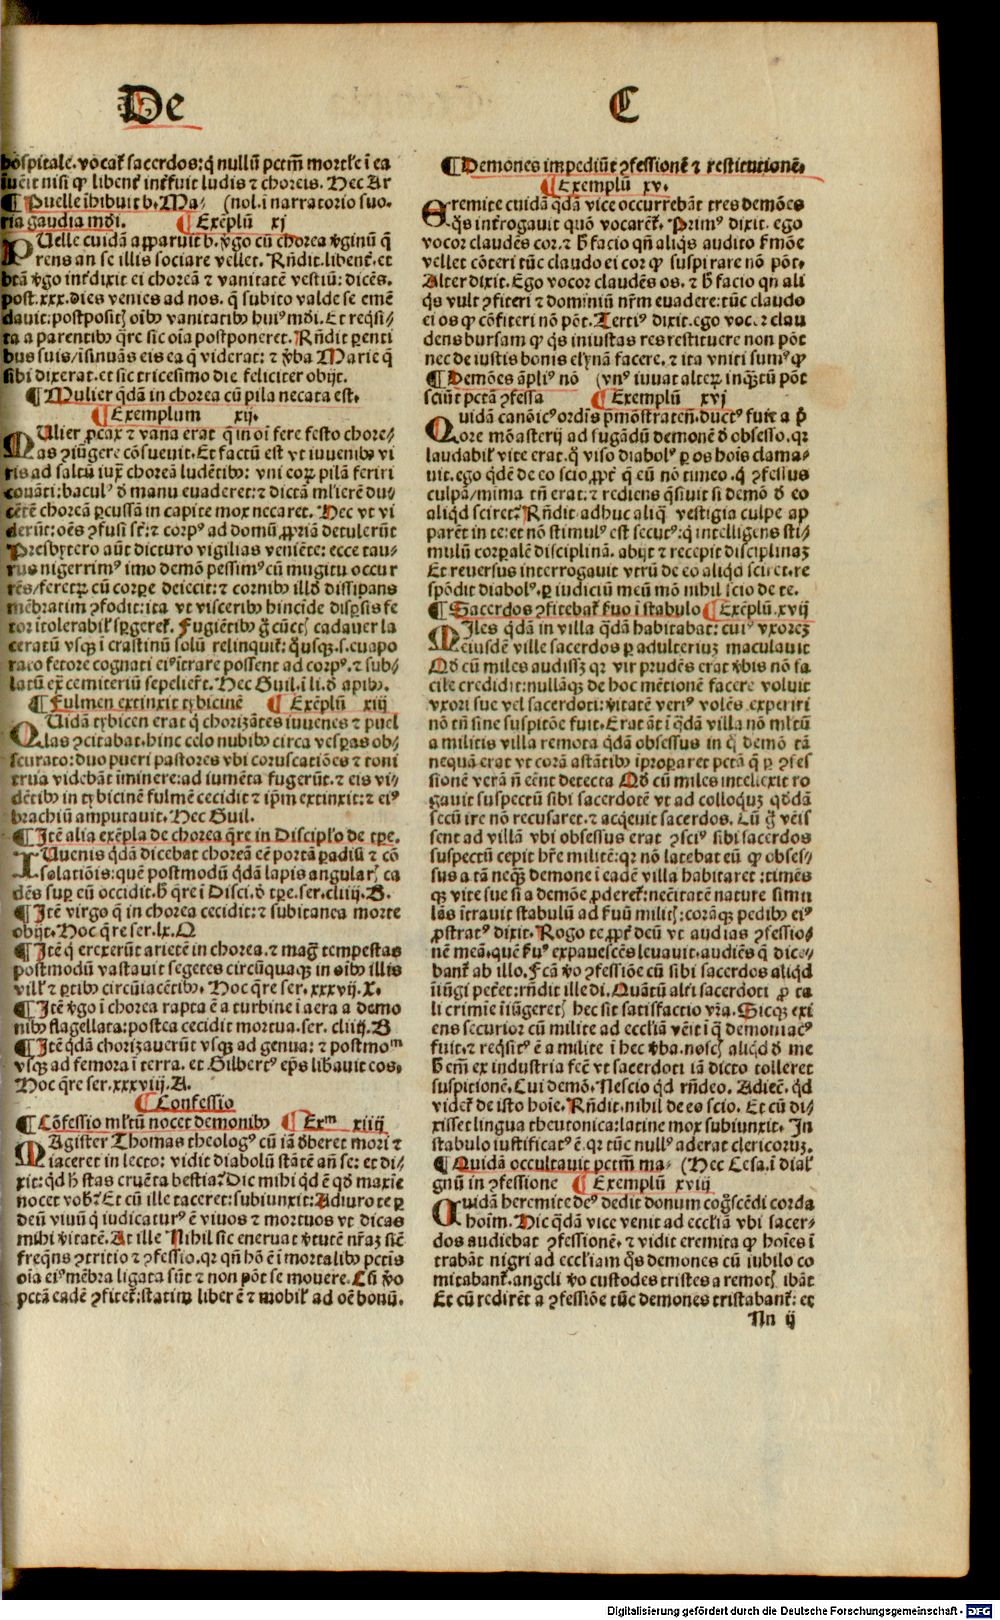 De C
hospitale. vocat̃ sacerdos: q̃ nullũ pctm̃ mortle ĩ ea
ĩuẽit nisi ꝙ libent̃ int̃fuit ludis ⁊ choreis. Hec Ar
¶ Puelle ĩhibuit b. Ma⸗ (nol. i narratorio suo.
ria gaudia mõi. ¶ Exẽplũ xj
PUelle cuidã apparuit b. ṽgo cũ chorea ṽginũ q̃
rens an se illis sociare vellet. Rñdit. libent̃. et
btã ṽgo int̃dixit ei choreã ⁊ vanitatẽ vestiũ: dicẽs.
post .xxx. dies venies ad nos. q̃ subito valde se emẽ
dauit: postpositꝭ oĩbꝰ vanitatibꝰ huiꝰ mõi. Et req̃si⸗
ta a parentibꝰ q̃re sic oĩa postponeret. Rñdit pẽnti
bus suis/ isinuãs eis ea q̃ viderat: ⁊ ṽba Marie q̃
sibi dixerat. et sic tricesimo die feliciter obijt.
¶ Mulier q̃dã in chorea cũ pila necata est.
¶ Exemplum xij.
MUlier ꝓcax ⁊ vana erat q̃ in oĩ fere festo chore⸗
as ꝯiũgere cõsueuit. Et factũ est vt iuuenibꝰ vi
ris ad saltũ iuxͭ choreã ludẽtibꝰ: vni coꝝ pilã feriri
couãti: baculꝰ d̃ manu euaderet: ⁊ dictã ml̃ierẽ du⸗
cẽtẽ choreã ꝑcussã in capite mox necaret. Hec vt vi
derũt: oẽs ꝯfusi st̃: ⁊ corpꝰ ad domũ ꝓpriã detulerũt
Presbytero aũt dicturo vigilias veniẽte: ecce tau⸗
rus nigerrimꝰ imo demõ pessimꝰ cũ mugitu occur
rẽs/ feretꝝ cũ corpe deiecit: ⁊ cornibꝰ illd̃ dissipans
mẽbratim ꝯfodit: ita vt visceribꝰ hincide disꝑsis fe
tor ĩtolerabil̃ sꝑgeret̃. Fugiẽtibꝰ g̃ cũctꝭ cadauer la
ceratũ vsqꝫ i crastinũ solũ relinquit̃: q̃usqꝫ .s. euapo
rato fetore cognati eiꝰ ĩtrare possent ad corpꝰ. ⁊ sub⸗
latũ ex cemiteriũ sepelier̃t. Hec Guil. i li. d̃ apibꝰ.
¶ Fulmen extinxit tybicinẽ ¶ Exẽplũ xiij
QUidã tybicen erat q̃ chorizãtes iuuenes ⁊ puel
las ꝯcitabat. hinc celo nubibꝰ circa vesꝑas ob⸗
scurato: duo pueri pastores vbi coruscatiões ⁊ toni
trua videbãt ĩminere: ad iumẽta fugerũt. ⁊ eis vi⸗
dẽtibꝰ in tybicinẽ fulmẽ cecidit ⁊ ip̃m extinxit: ⁊ eiꝰ
brachiũ amputauit. Hec Guil.
¶ Itẽ alia exẽpla de chorea q̃re in Discipl̃o de tp̃e.
IUuenis q̃dã dicebat choreã eẽ portã padisi ⁊ cõ
solatiõis: quẽ postmodũ q̃dã lapis angularꝭ ca
dẽs suꝑ eũ occidit. h̃ q̃re ĩ Disci. d̃ tp̃e. ser. cliij. B.
¶ Itẽ virgo q̃ in chorea cecidit: ⁊ subitanea morte
obijt. Hoc q̃re ser. lx. O
¶ Itẽ q̃ erexerũt arietẽ in chorea. ⁊ mag̃ tempestas
postmodũ vastauit segetes circũquaqꝫ in oĩbꝰ illis
vill̃ ⁊ ꝑtibꝰ circũiacẽtibꝰ. Hoc q̃re ser. xxxvij. X.
¶ Itẽ ṽgo ĩ chorea rapta ẽ a turbine ĩ aera a demo
nibꝰ flagellata: postea cecidit mortua. ser. cliij. B
¶ Itẽ q̃dã chorizauerũt vsqꝫ ad genua: ⁊ postmoᵐ
vsqꝫ ad femora ĩ terra. et Gilbertꝰ ep̃s libauit eos.
Hoc q̃re ser. xxxviij. A.
¶ Confessio
¶ Cõfessio ml̃tũ nocet demonibꝰ ¶ Exᵐ xiiij
MAgister Thomas theologꝰ cũ iã d̃beret mori ⁊
iaceret in lecto: vidit diabolũ stãtẽ añ se: et di⸗
xit: qd̃ h̃ stas cruẽta bestia? Dic mihi qd̃ ẽ qd̃ maxĩe
nocet vob̃? Et cũ ille taceret: subiunxit: Adiuro te ꝑ
deũ viuũ q̃ iudicaturꝰ ẽ viuos ⁊ mortuos vt dicas
mihi ṽitatẽ. At ille Nihil sic eneruat ṽtutẽ nr̃aꝫ sicẽ
freq̃ns ꝯtritio ⁊ ꝯfessio. qr qñ hõ ẽ i mortalibꝰ pctĩs
oĩa eiꝰ mẽbra ligata sũt ⁊ non põt se mouere. Cũ ṽo
pctã eadẽ ꝯfitet̃: statim liber ẽ ⁊ mobil̃ ad oẽ bonũ.
¶ Demones impediũt ꝯfessionẽ ⁊ restitutionẽ.
¶ Exemplũ xv.
ERemite cuidã q̃dã vice occurrebãt tres demões
q̃s int̃rogauit quõ vocarẽt̃. Primꝰ dixit. ego
vocor claudẽs cor. ⁊ h̃ facio qñ aliq̃s audito ẽmõe
vellet cõteri tũc claudo ei cor ꝙ suspirare nõ põt.
Alter dixit. Ego vocor claudẽs os. ⁊ h̃ facio qñ ali
q̃s vult ꝯfiteri ⁊ dominiũ nr̃m euadere: tũc claudo
ei os ꝙ cõfiteri nõ põt. Tertiꝰ dixit. ego vocor clau
dens bursam ꝙ q̃s iniustas res restituere non põt
nec de iustis bonis elynã facere. ⁊ ita vniti sumꝰ ꝙ
¶ Demões ãpliꝰ nõ (vnꝰ iuuat alteꝝ inq̃tũ põt
sciũt pctã ꝯfessa ¶ Exemplũ xvj
QUidã canõicꝰ ordĩs p̃mõstrateñ. ductꝰ fuit a p̃
ore mõasterij ad fugãdũ demonẽ d̃ obsesso. qr
laudabil̃ vite erat. q̃ viso diabolꝰ ꝑ os hoĩs clama⸗
uit. ego qdẽ de eo scio ꝓpt̃ q̃ eũ nõ timeo. q̃ ꝯfessus
culpã/ mima tñ erat: ⁊ rediens q̃siuit si demõ d̃ eo
aliqd̃ sciret? Rñdit. adhuc aliq̃ vestigia culpe ap
parẽt in te: et nõ stimulꝰ est secutꝰ: q̃ intelligens sti⸗
mulũ corꝑalẽ disciplinã. abijt ⁊ recepit disciplinaꝫ
Et reuersus interrogauit vtrũ de eo aliqd̃ sciret. re
spõdit diabolꝰ. ꝑ iudiciũ meũ mõ nihil scio de te.
¶ Sacerdos ꝯfitebat̃ ẽuo ĩ stabulo ¶ Exẽplũ. xvij
MIles q̃dã in villa q̃dã habitabat: cuiꝰ vxoreꝫ
eiusdẽ ville sacerdos ꝑ adulteriuꝫ maculauit
Qd̃ cũ miles audissꝫ qr vir prudẽs erat ṽbis nõ fa
cile credidit: nullãqꝫ de hoc mẽtionẽ facere voluit
vxori sue vel sacerdoti: ṽitatẽ veriꝰ volẽs experiri
nõ tñ sine suspitõe fuit. Erat ãt ĩ q̃dã villa nõ ml̃tũ
a militis villa remota q̃dã obsessus in q̃ demõ tã
nequã erat vt corã astãtibꝰ ĩproꝑaret pctã q̃ ꝑ ꝯfes
sionẽ verã ñ eẽnt detecta Qd̃ cũ miles intelexit ro
gauit suspectũ sibi sacerdotẽ vt ad colloq̃uꝫ qd̃dã
secũ ire nõ recusaret. ⁊ acq̃euit sacerdos. Cũ g̃ vẽis
sent ad villã vbi obsessus erat ꝯsciꝰ sibi sacerdos
suspectũ cepit hr̃e militẽ: qr nõ latebat eũ ꝙ obses⸗
sus a tã neqꝫ demone i eadẽ villa habitaret: timẽs
qꝫ vite sue si a demõe ꝓderet̃: necitatẽ nature simu
lãs ĩtrauit stabulũ ad ẽuũ militꝭ: corãqꝫ pedibꝰ eiꝰ
ꝓstratꝰ dixit. Rogo te ꝓpt̃ deũ vt audias ꝯfessio⸗
nẽ meã. quẽ ẽuꝰ expauescẽs leuauit. audiẽs q̃ dice⸗
bant̃ ab illo. Fcã ṽo ꝯfessiõe cũ sibi sacerdos aliqd̃
ĩiũgi petẽt: rñdit ille di. Quãtũ alt̃i sacerdoti ꝓ ta
li crimĩe ĩiũgeretꝭ hec sit satisfactio vr̃a. Sicqꝫ exi
ens securior cũ milite ad eccl̃iã vẽit ĩ q̃ demoniacꝰ
fuit. ⁊ req̃sitꝰ ẽ a milite ĩ hec ṽba. noscꝭ aliqd̃ d̃ me
h̃ em̃ ex industria fcẽ vt sacerdoti iã dicto tolleret
suspitionẽ. Cui demõ. Nescio qd̃ rñdeo. Adiec̃. qd̃
videt̃ de isto hoĩe. Rñdit. nihil de eo scio. Et cũ di⸗
xisset lingua theutonica: latine mox subiunxit. In
stabulo iustificatꝰ ẽ. qr tũc nullꝰ aderat clericoruꝫ.
¶ Quidã occultauit pctm̃ ma⸗ (Hec Cesa. ĩ dial̃
gnũ in ꝯfessione ¶ Exemplũ xviij
CUidã heremite deꝰ dedit donum cog̃scẽdi corda
hoĩm. Hic q̃dã vice venit ad eccl̃iã vbi sacer⸗
dos audiebat ꝯfessionẽ. ⁊ vidit eremita ꝙ hoĩes ĩ
trabãt nigri ad eccl̃iam q̃s demones cũ iubilo co
mitabant̃. angeli ṽo custodes tristes a remotꝭ ibãt
Et cũ redirẽt a ꝯfessiõe tũc demones tristabant̃: et
Nn ij
Digitalisierung gefördert durch die Deutsche Forschungsgemeinschaft - DFG